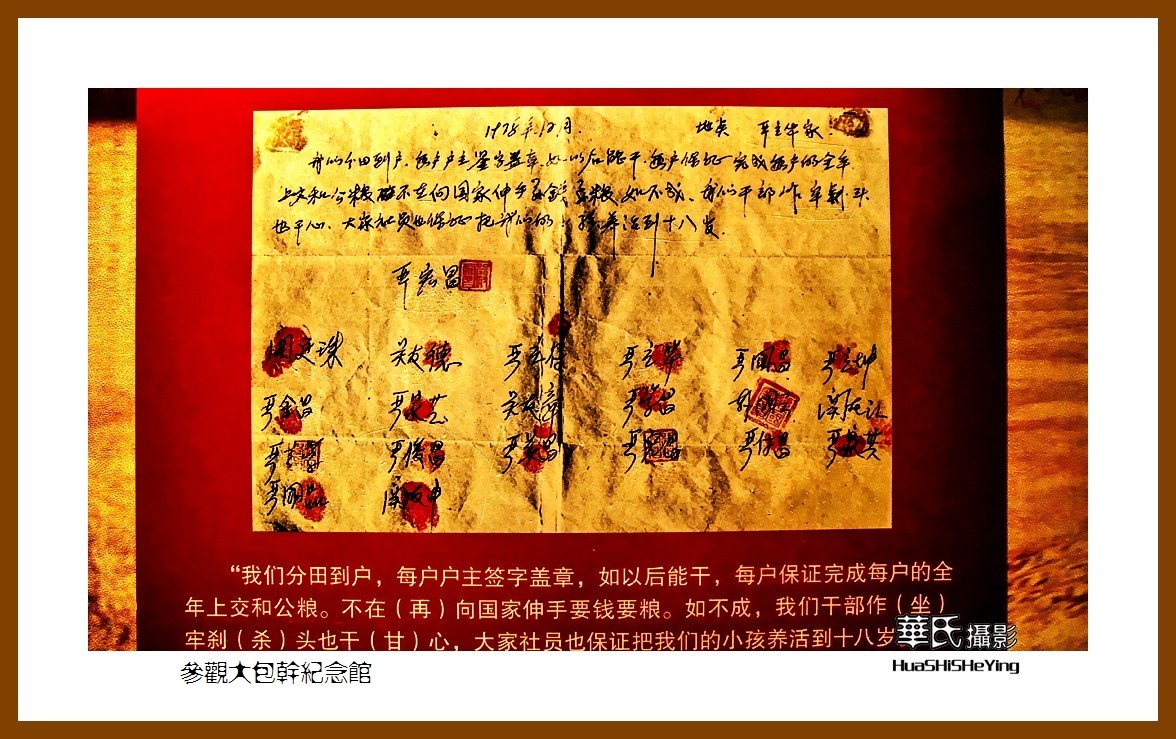 1978年12月. 地点 严立华家.
我们分田到户.每户户主签字盖章.如以后能干.每户保证完成每户的全年
上交和公粮 不在向国家伸手要钱要粮 如不成、我们干部作牢刹头
也干心、大家社员也保证把我们的小孩养活到十八岁.
严宏昌
关廷珠 关友德 严立符 严立华 严国昌 严立坤
严金昌 严家芝 关友章 严学昌 韩国云 关友江
严立学 严俊昌 严美昌 严宏昌 严付昌 严家其
严国品 关友申
“我们分田到户，每户户主签字盖章，如以后能干，每户保证完成每户的全
年上交和公粮。不在（再）向国家伸手要钱要粮。如不成，我们干部作（坐）
牢刹（杀）头也干（甘）心，大家社员也保证把我们的小孩养活到十八岁
華氏攝影
參觀大包幹紀念館
HuaSHiSHeYing